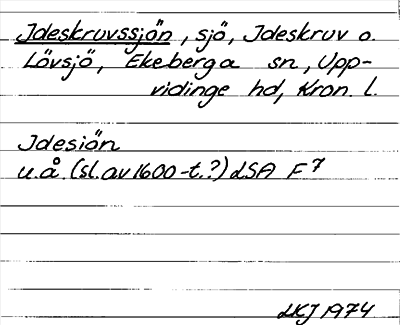 Jdeskruvssjön, sjö, Jdeskruv o.
Lövsjö, Ekeberga sn, Upp-
vidinge hd, Kron. l.
Jdesiön
u.å. (sl. av 1600-t.?) LSA F7
LKJ 1974